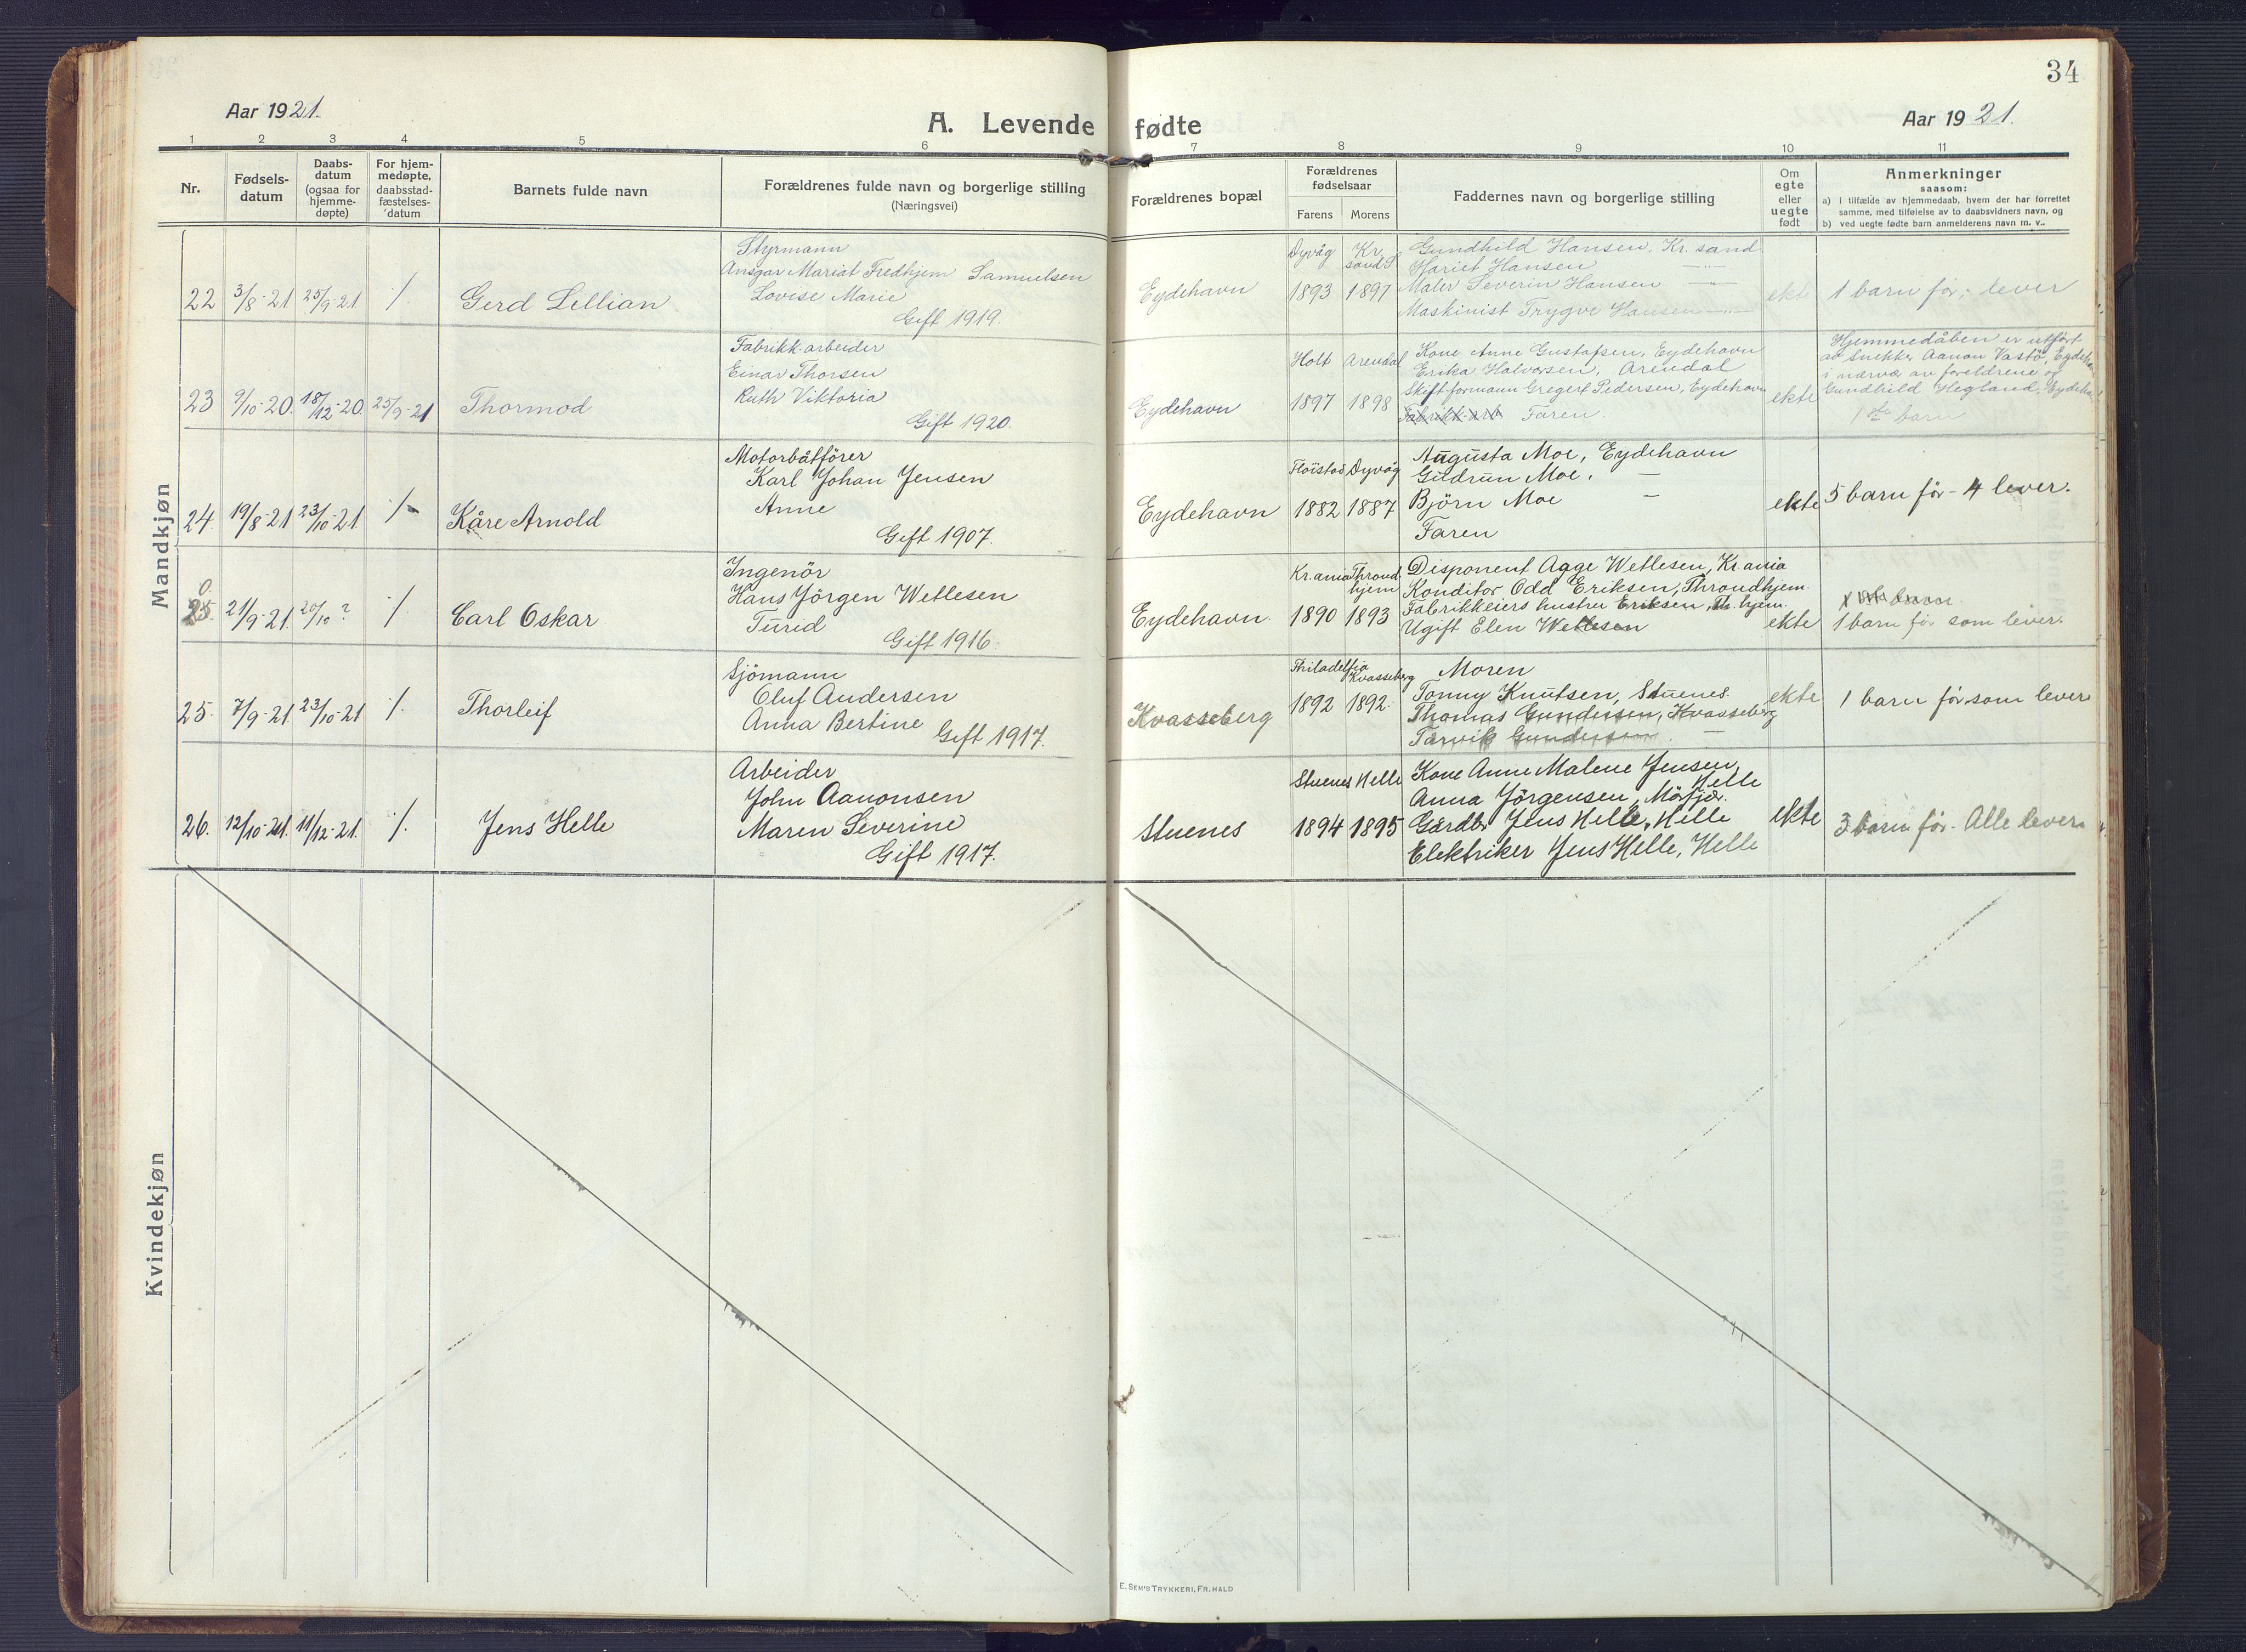 34
Aar 1921.
A. Levende fødte
Aar 1921.
1 2 3 4 5 6 7 8 9 10 11
Nr.
Fødsels-
datum
Daabs-
datum
(ogsaa for
hjemme-
døpte)
For hjem-
medøpte,
daabsstad-
fæstelses-
datum
Barnets fulde navn
Forældrenes fulde navn og borgerlige stilling
(Næringsvei)
Forældrenes bopæl
Forældrenes
fødselsaar
Farens Morens
Faddernes navn og borgerlige stilling
Om
egte
eller
uegte
født
Anmerkninger
saasom:
a) i tilfælde av hjemmedaab, hvem der har forrettet
samme, med tilføielse av to daabsvidners navn, og
b) ved uegte fødte barn anmelderens navn m. v..
Mandkjøn
22 3/8-21 25/9-21 ./. Gerd Lillian
Styrmann
Ansgar Mariat Fredhjem Samuelsen
Lovise Marie
Gift 1919.
Eydehavn
Dyvåg Kr.
sand S
1893 1897
Gundhild Hansen, Kr. sand
Hariet Hansen —"—
Maler Severin Hansen —"—
Maskinist Trygve Hansen —"—
ekte
1 barn før; lever
23 9/10-20. 18/12-20. 25/9-21 Thormod
Fabrikk-arbeider
Einar Thorsen
Ruth Viktoria
Gift 1920.
Eydehavn
Holt Arendal
1897 1898
Kone Anne Gustafsen, Eydehavn
Erika Halvorsen, Arendal
Skiftformann Gregert Pedersen, Eydehavn
Fabrikk-arb Faren.
ekte
Hjemmedåben er utført
av Snekker Aanon Vastø, Eydeh
i nærvær av foreldrene og
Gundhild Hegland, Eydeha
1ste barn
24. 19/8-21 23/10-21 ./. Kåre Arnold
Motorbåtfører
Karl Johan Jensen
Anne
Gift 1907.
Eydehavn
Floistad Dyvåg
1882 1887
Augusta Moe, Eydehavn
Gudrun Moe, —
Bjørn Moe —
Faren
ekte
5 barn før - 4 lever.
0
25. 21/9-21. 20/10 ? ./. Carl Oskar
Ingenör
Hans Jörgen Wetlesen
Turid
Gift 1916.
Eydehavn.
Kr.ania Thrond
hjem
1890 1893
Disponent Aage Wetlesen, Kr.ania
Konditor Odd Eriksen, Throndhjem.
Fabrikkeiers hustru Eriksen, Th.hjem.
Ugift Elen Wetlesen
ekte
1 barn før som lever.
25. 7/9-21. 23/10-21 ./. Thorleif
Sjömann
Oluf Andersen
Anna Bertine
Gift 1917.
Kvasseberg
Philadelfia
Kvasseberg
1892 1892.
Moren
Tonny Knutsen, Stuenes.
Thomas Gundersen, Kvasseberg
Tarvik Gundersen. —
ekte
1 barn før som lever
26. 12/10-21. 11/12-21. ./. Jens Helle
Arbeider
John Aanonsen
Maren Severine
Gift 1917.
Stuenes
Stuenes Helle
1894 1895
Kone Anne Malene Jensen,
Helle
Anna Jörgensen, Møfjær.
Gårdbr Jens Helle, Helle
Elektriker Jens Helle, Helle
ekte
3 barn før - Alle lever
Kvindekjøn
E. Sem's Trykkeri, Fr.hald